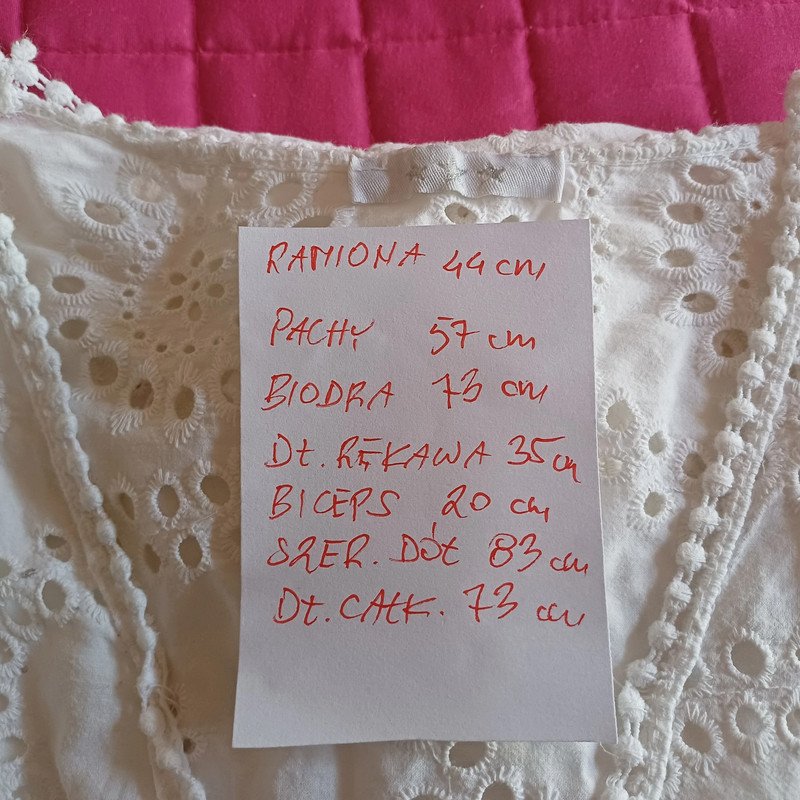 RAMIONA 44 cm
PACHY 57 cm
BIODRA 73 cm
Dł. RĘKAWA 35 cm
BICEPS 20 cm
SZER. DÓŁ 83 cm
Dł. CAŁK. 73 cm